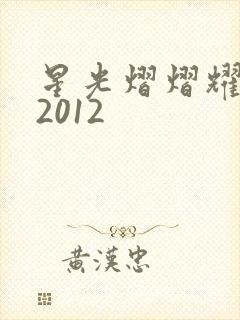 星光熠熠耀
2012
黄漢忠